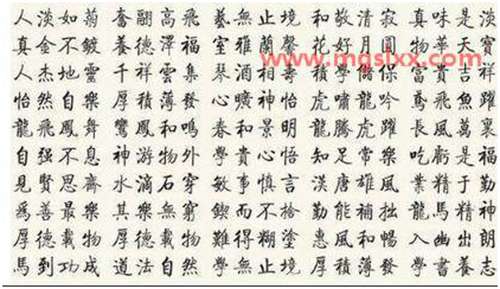 人淡如菊 奮翮高飛 藝無止境 和敬清寂 真味是淡
真金不鍍 養德澤福 室雅蘭馨 花好月圓 物華天寶
www.mqsixx.com
人杰地靈 千祥雲集 琴酒相壽 積學 富貴吉祥
怡然自樂 厚積薄發 心曠神怡 虎嘯龍吟 鳶飛魚躍
龍飛鳳舞 鸞鳳和鳴 春和景明 龍騰虎躍 長風萬裏
自强不息 神游物外 貴心悟 知足常樂 吃虧是福
見賢思齊 水滴石穿 敏事慎言 漢唐雄風 業精于勤
爲善最樂 其樂無窮 鍥而不捨 勤能補拙 龍馬精神
厚德載物 厚德載物 難得糊塗 惠風和暢 入幽出朗
馬到功成 道法自然 學無止境 厚積薄發 學書養志